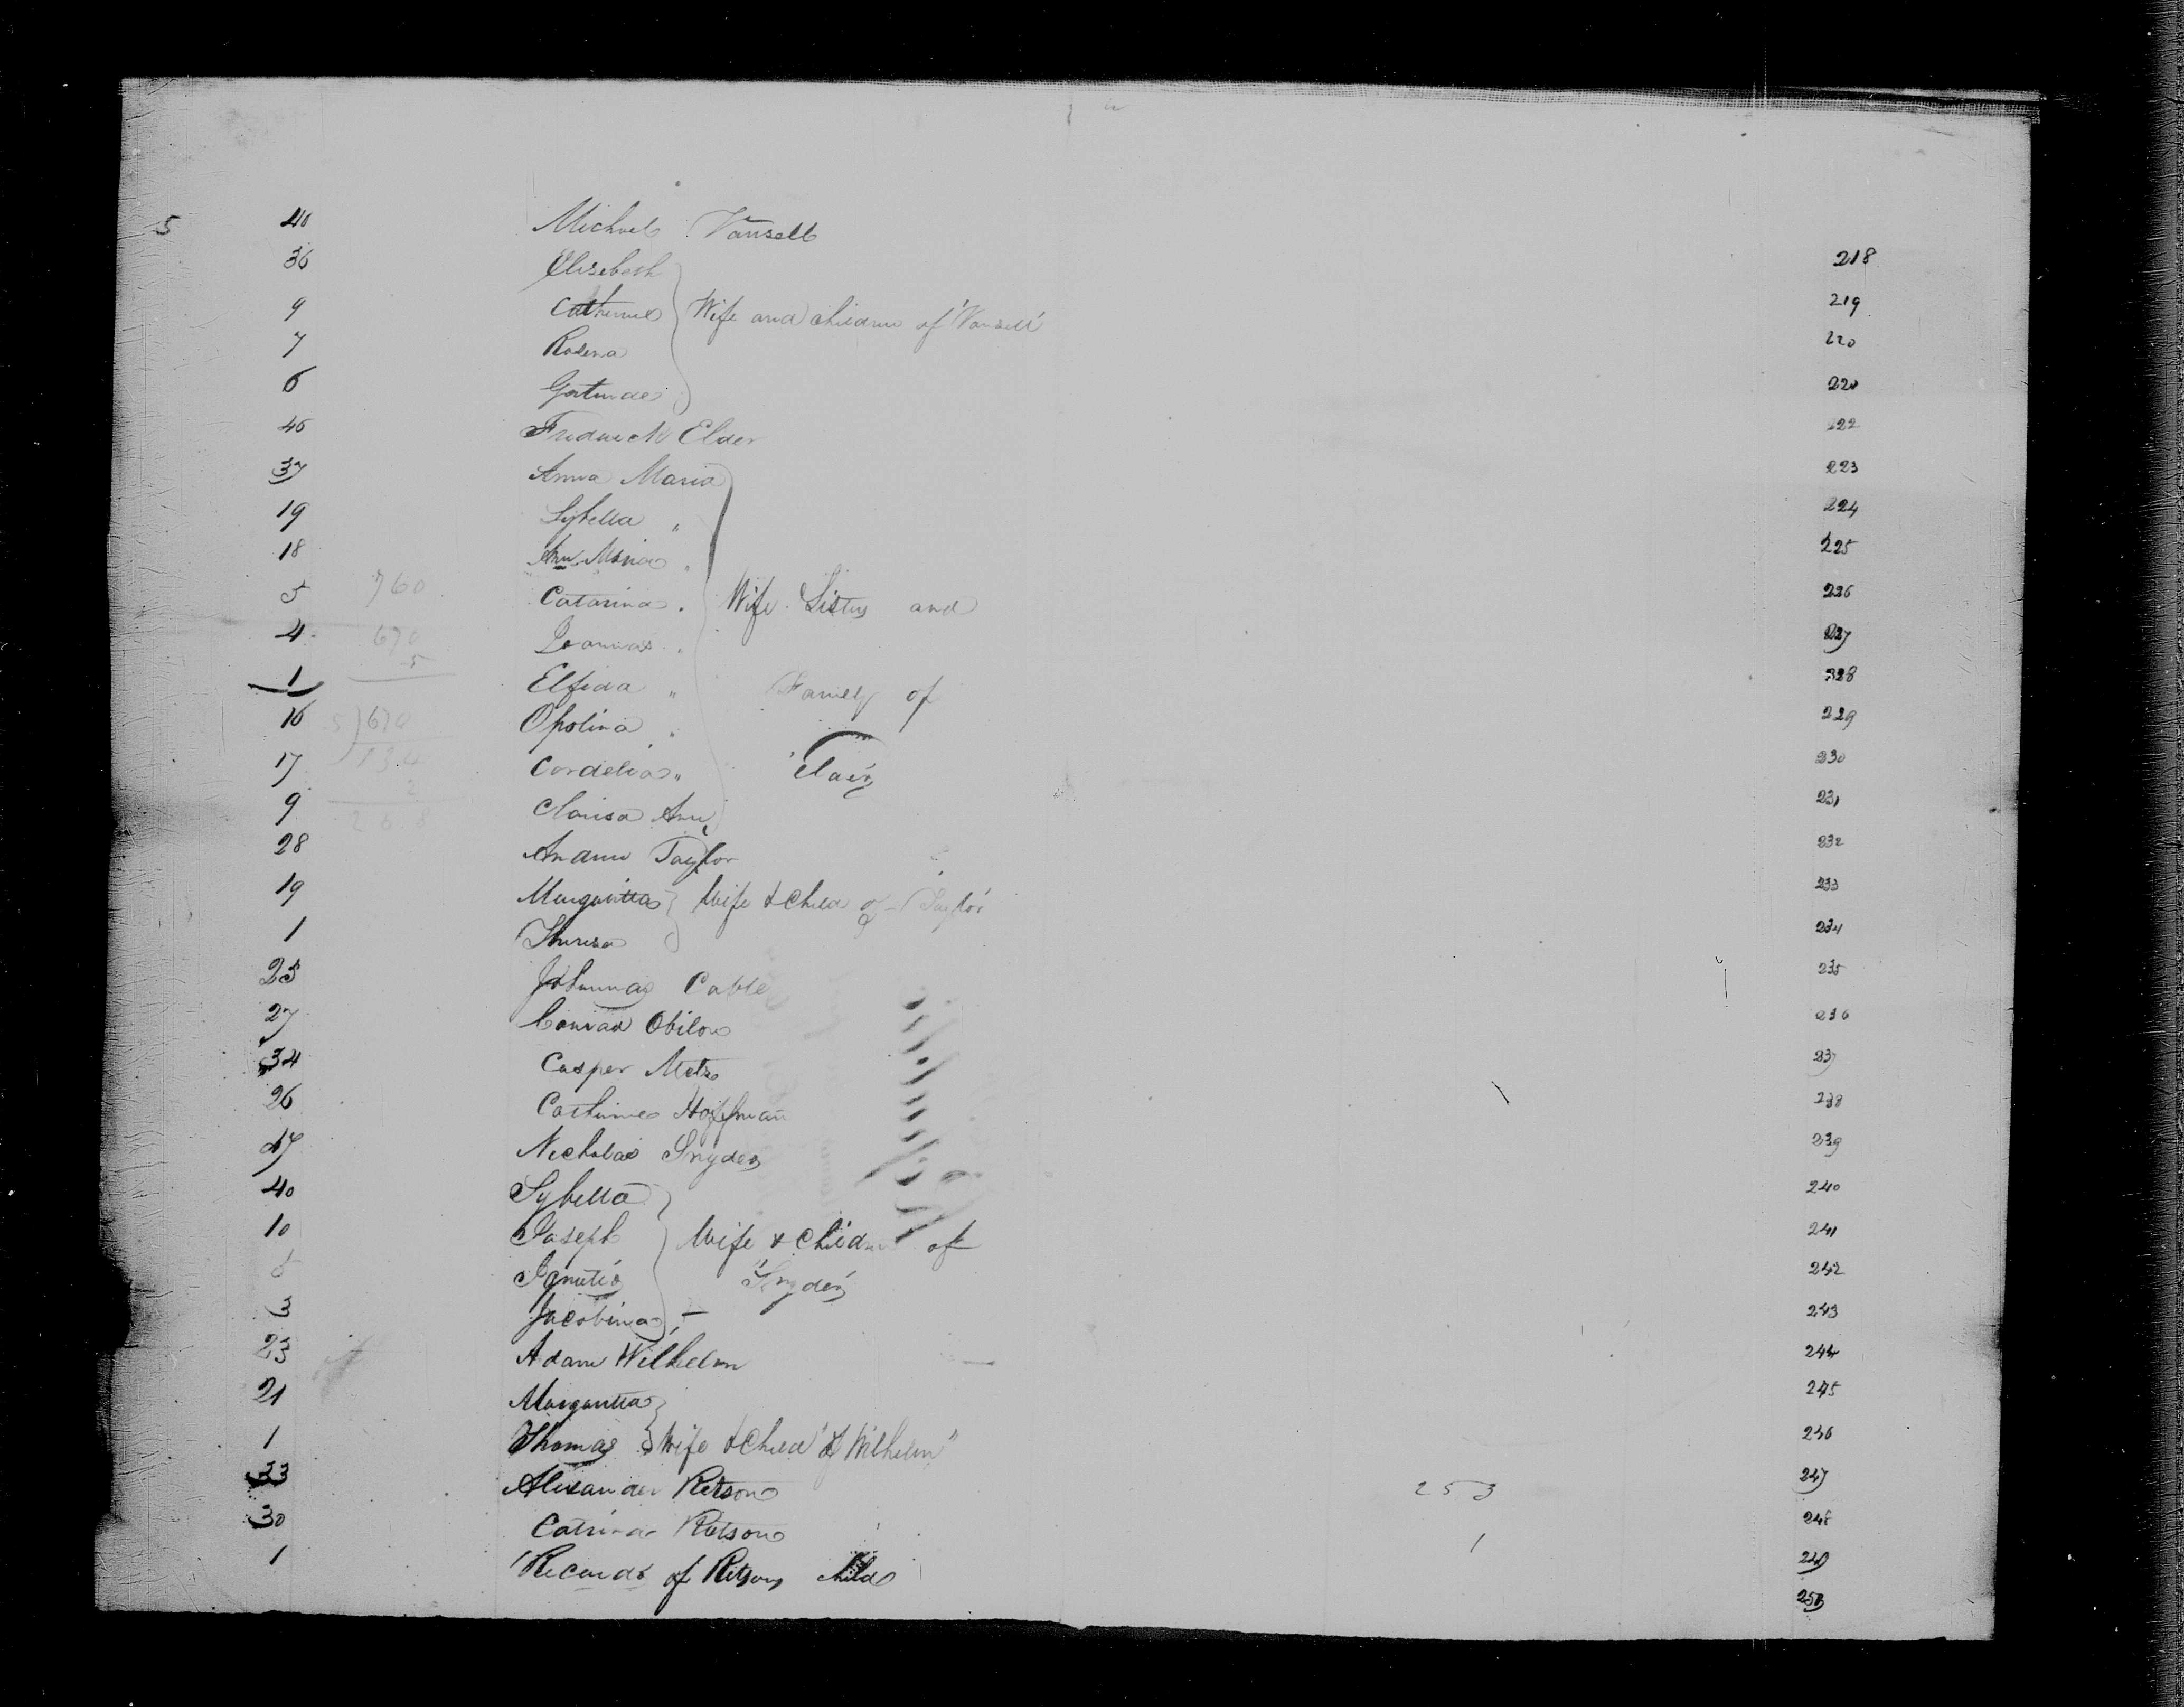 5 40 Michael Vansell
36 Elisebeth 218
9 Catherine Wife and children of "Vansell" 219
7 Rosena 220
6 Gertrude 220
Fredrick Elder 222
37 Anna Maria 223
19 Sybella " 224
18 Ann Maria " 225
5 760 Catarina " Wife Sisters and 226
4 670 Joannas " 227
5
1 Elfida " Family of 328
16 5)670 Opolina " 229
17 134 Cordelia " 230
2
9 268 Clarisa Ann 231
28 Taylor 232
19 Margaritta Wife & Child of "Taylor" 233
1 Theresa 234
25 Johannas Cable 235
27 Conrad 236
34 Casper Metz 237
26 Catherine Hoffman 238
47 Nicholas Snyder 239
40 Sybella 240
10 Joseph Wife & Children of 241
Ignatio "Snyder" 242
3 Jacobina 243
23 Adam Wilhelm 244
21 Margaritta 245
1 Thomas Wife & Child "of Wilhelm" 246
33 Alexander Retson 253 247
30 Catrina Retson 1 248
1 of Retsons child 249